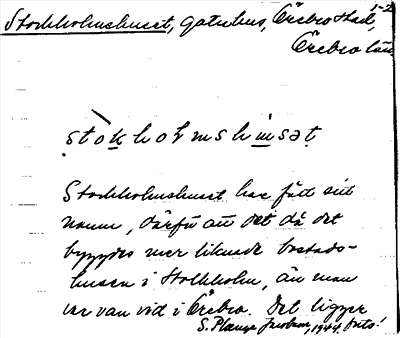 1-2
Stockholmshuset, gatuhus, Örebro stad,
Örebro län
stokholmshusat
Stockholmshuset har fått sitt
namn, därför att det då det
byggdes mer liknade bostads-
husen i Stockholm, än man
var van vid i Örebro. Det ligger
S. 1944. forts!